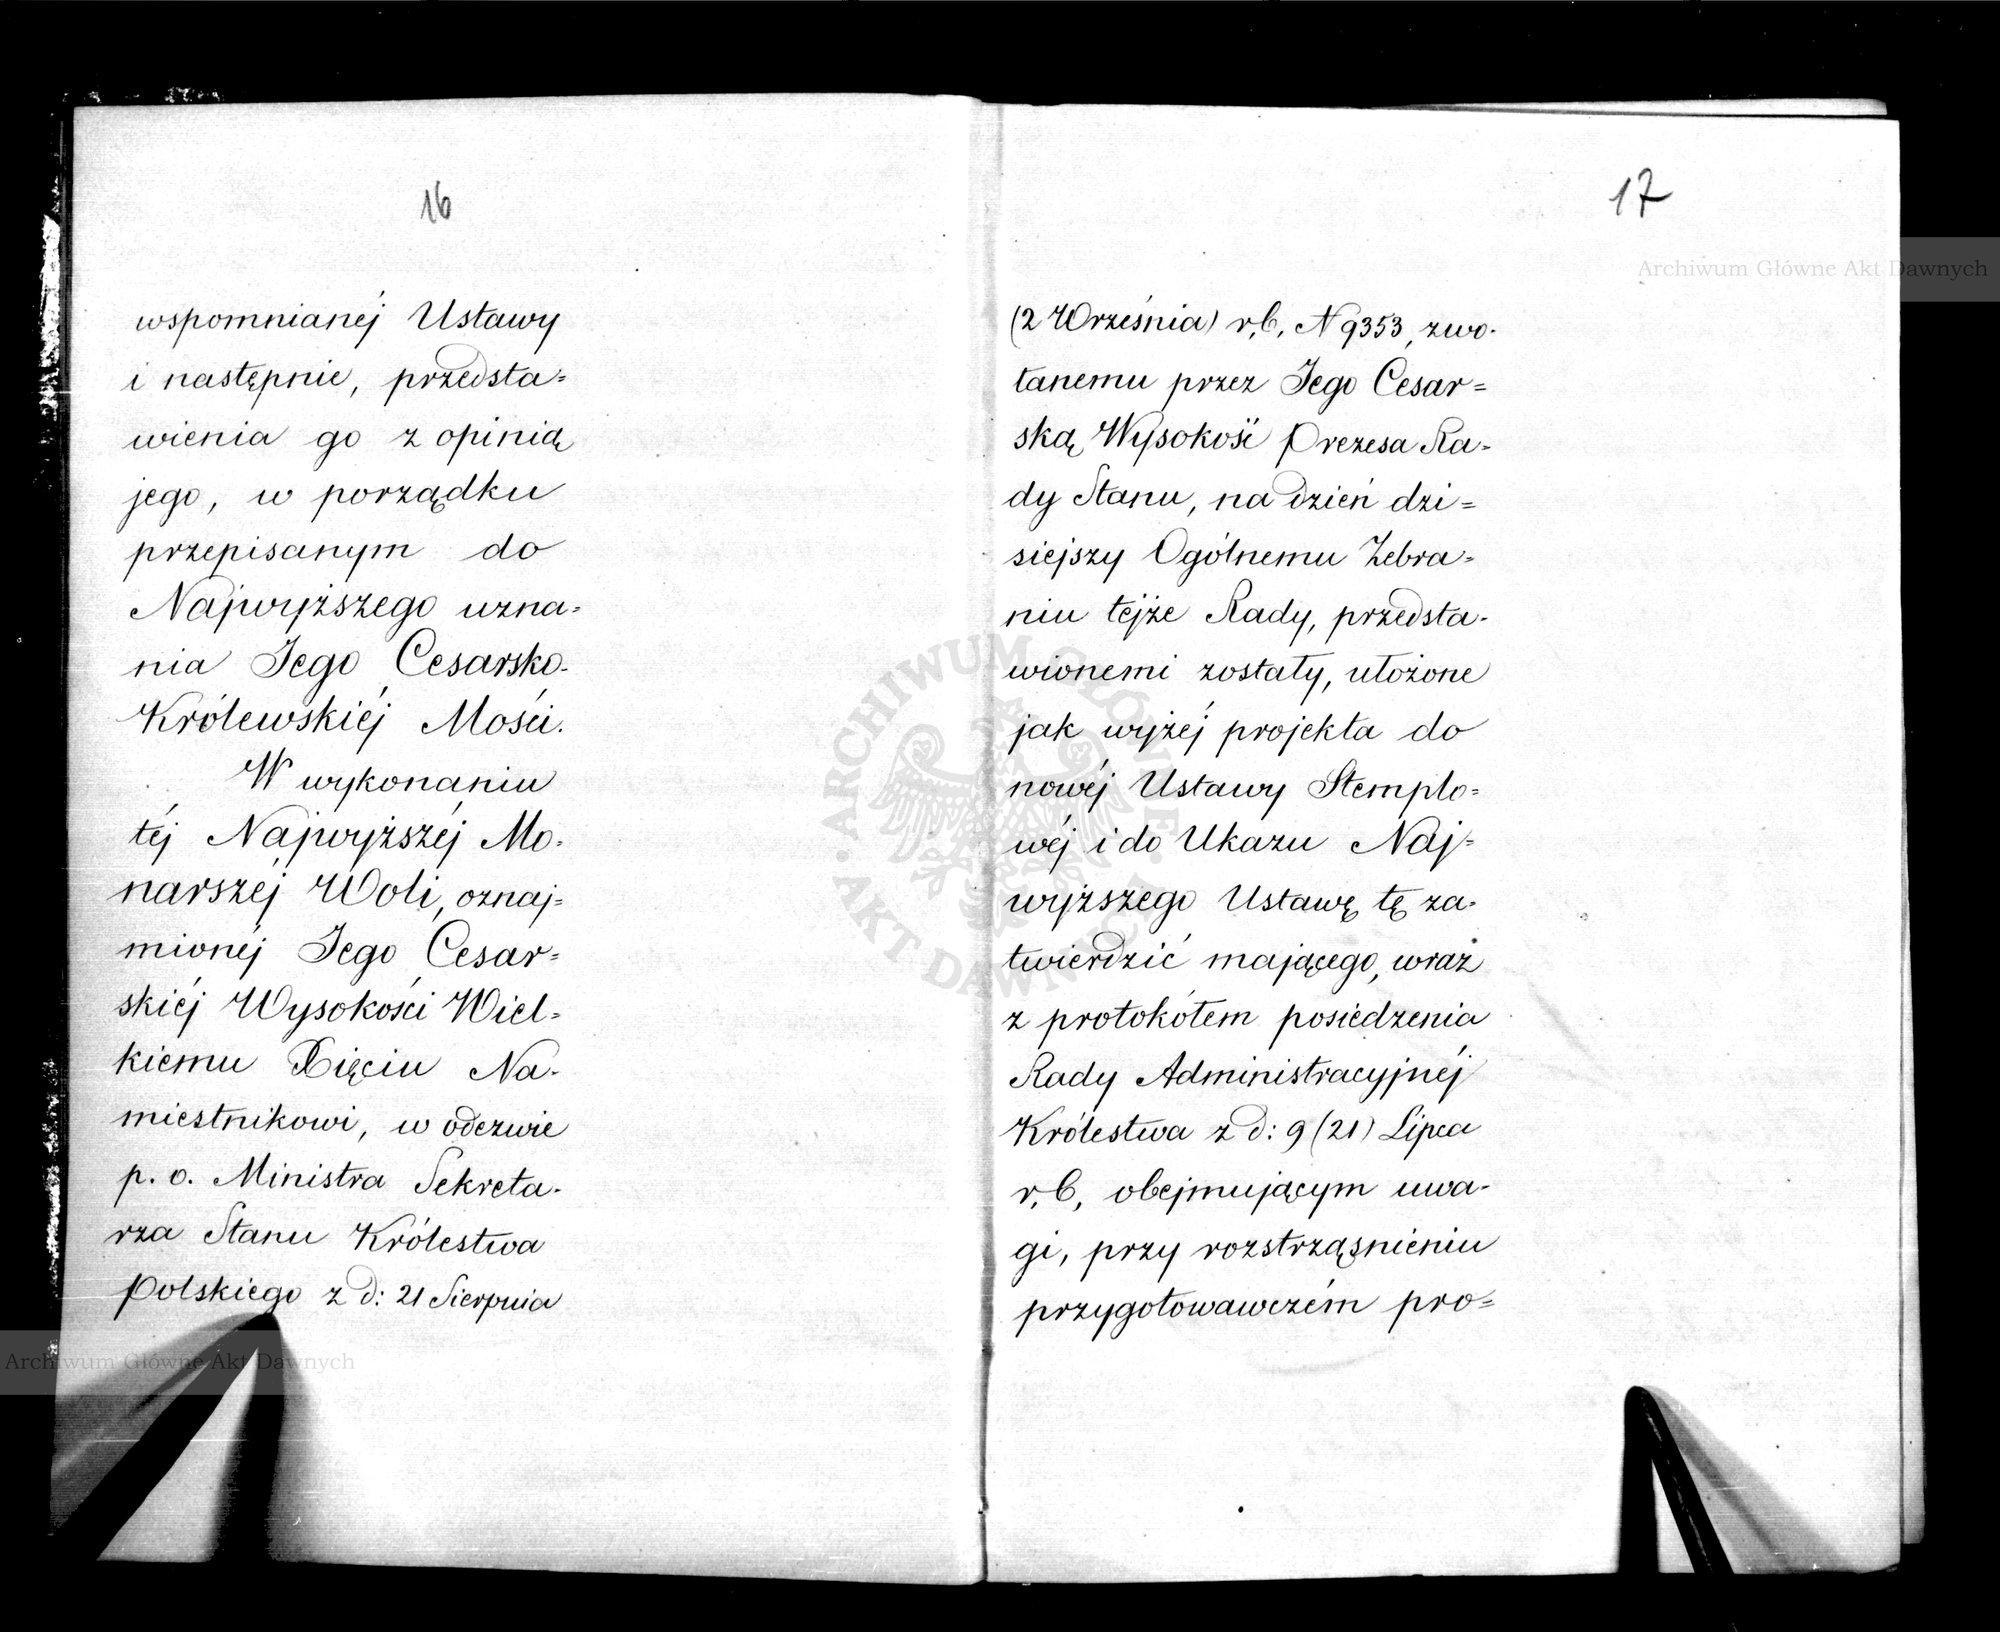 16
wspomnianéj Ustawy
i następnie, przedsta=
wienia go z opinią
jego, w porządku
przepisanym do
Najwyższego uzna=
nia Jego Cesarsko-
Królewskiéj Mości.
W wykonaniu
téj Najwyższéj Mo-
narszéj Woli, oznaj=
mionéj Jego Cesar=
skiéj Wysokości Wiel=
kiemu Xięciu Na-
miestnikowi, w odezwie
p. o. Ministra Sekreta-
rza Stanu Królestwa
Polskiego z d: 21 Sierpnia
17
(2 Września) r, b, N 9353, zwo-
łanemu przez Jego Cesar=
ską Wysokość Prezesa Ra-
dy Stanu, na dzień dzi=
siejszy Ogólnemu Zebra=
niu tejże Rady, przedsta-
wionemi zostały, ułożone
jak wyżéj projekta do
nowéj Ustawy Stemplo=
wéj i do Ukazu Naj=
wyższego Ustawę tę za-
twierdzić mającego, wraz
z protokółem posiedzenia
Rady Administracyjnéj
Królestwa z d: 9 (21) Lipca
r, b, obejmującym uwa-
gi, przy rozstrząśnieniu
przygotowawczém pro=
Archiwum Główne Akt Dawnych
Archiwum Główne Akt Dawnych
ARCHIWUM GŁÓWNE
AKT DAWNYCH